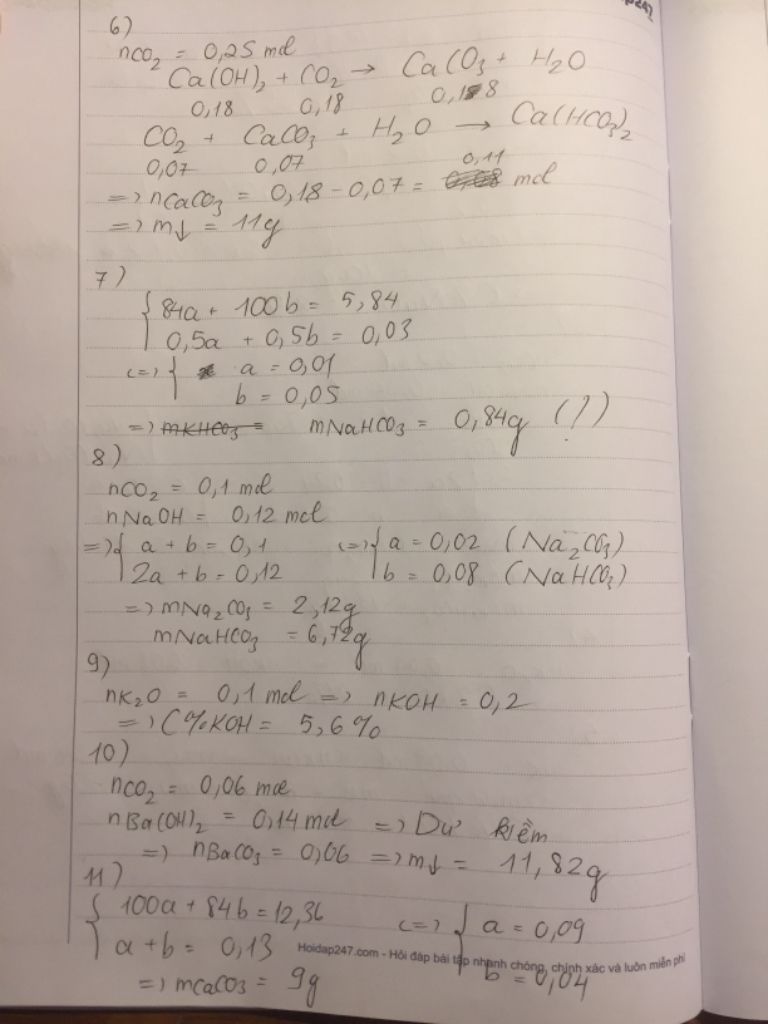 6)
nCO₂ = 0,25 mol
Ca(OH)₂ + CO₂ → CaCO₃ + H₂O
0,18 0,18 0,18
CO₂ + CaCO₃ + H₂O → Ca(HCO₃)₂
0,07 0,07
0,11
=> nCaCO₃ = 0,18 - 0,07 = mol
=> m↓ = 11g
7)
{ 84a + 100b = 5,84
0,5a + 0,5b = 0,03
<=> { a = 0,01
b = 0,05
=> mKHCO₃ = mNaHCO₃ = 0,84g (?)
8)
nCO₂ = 0,1 mol
nNaOH = 0,12 mol
=> { a + b = 0,1 <=> { a = 0,02 (Na₂CO₃)
2a + b = 0,12 b = 0,08 (NaHCO₃)
=> mNa₂CO₃ = 2,12g
mNaHCO₃ = 6,72g
9)
nK₂O = 0,1 mol => nKOH = 0,2
=> C%KOH = 5,6%
10)
nCO₂ = 0,06 mol
nBa(OH)₂ = 0,14 mol => Dư kiềm
=> nBaCO₃ = 0,06 => m↓ = 11,82g
11)
{ 100a + 84b = 12,36 <=> { a = 0,09
a + b = 0,13 b = 0,04
Hoidap247.com - Hỏi đáp bài tập nhanh chóng, chính xác và luôn miễn phí
=> mCaCO₃ = 9g